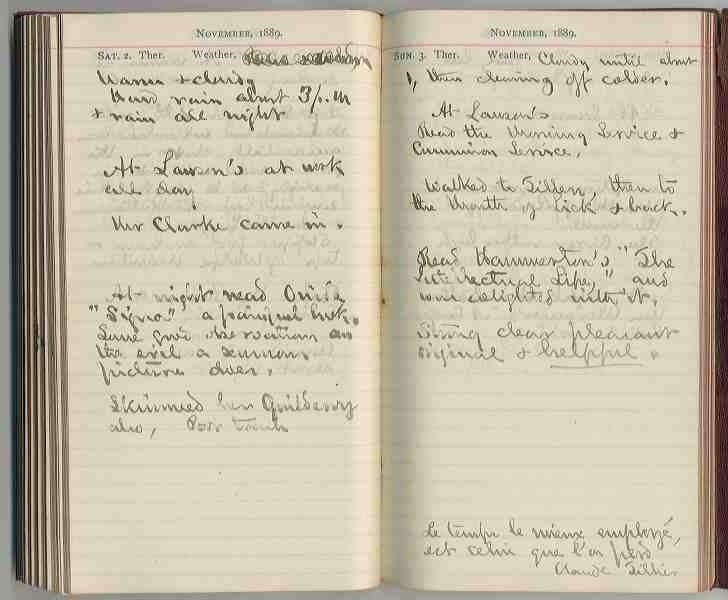 November, 1889.
Sat. 2. Ther. Weather,
Warm & cloudy
Hard rain about 3 P.M
& rain all night
At Lawson's at work
all day
Mr Clarke came in.
At night read Ouida
"Signa" a painful book.
Some good observations on
the evil a sermon
picture does.
Skimmed her Guilderoy
also, Poor trash
November, 1889.
Sun. 3. Ther. Weather, Cloudy until about
1, then clearing off colder.
At Lawson's
Read the Morning Service &
Communion Service.
Walked to Tillen, then to
the Mouth of Lick & back.
Read Hammerton's "The
Intellectual Life," and
was delighted with it.
Strong clear pleasant
original & helpful.
Le temps le mieux employé,
est celui que l'on perd
Claude Tillier